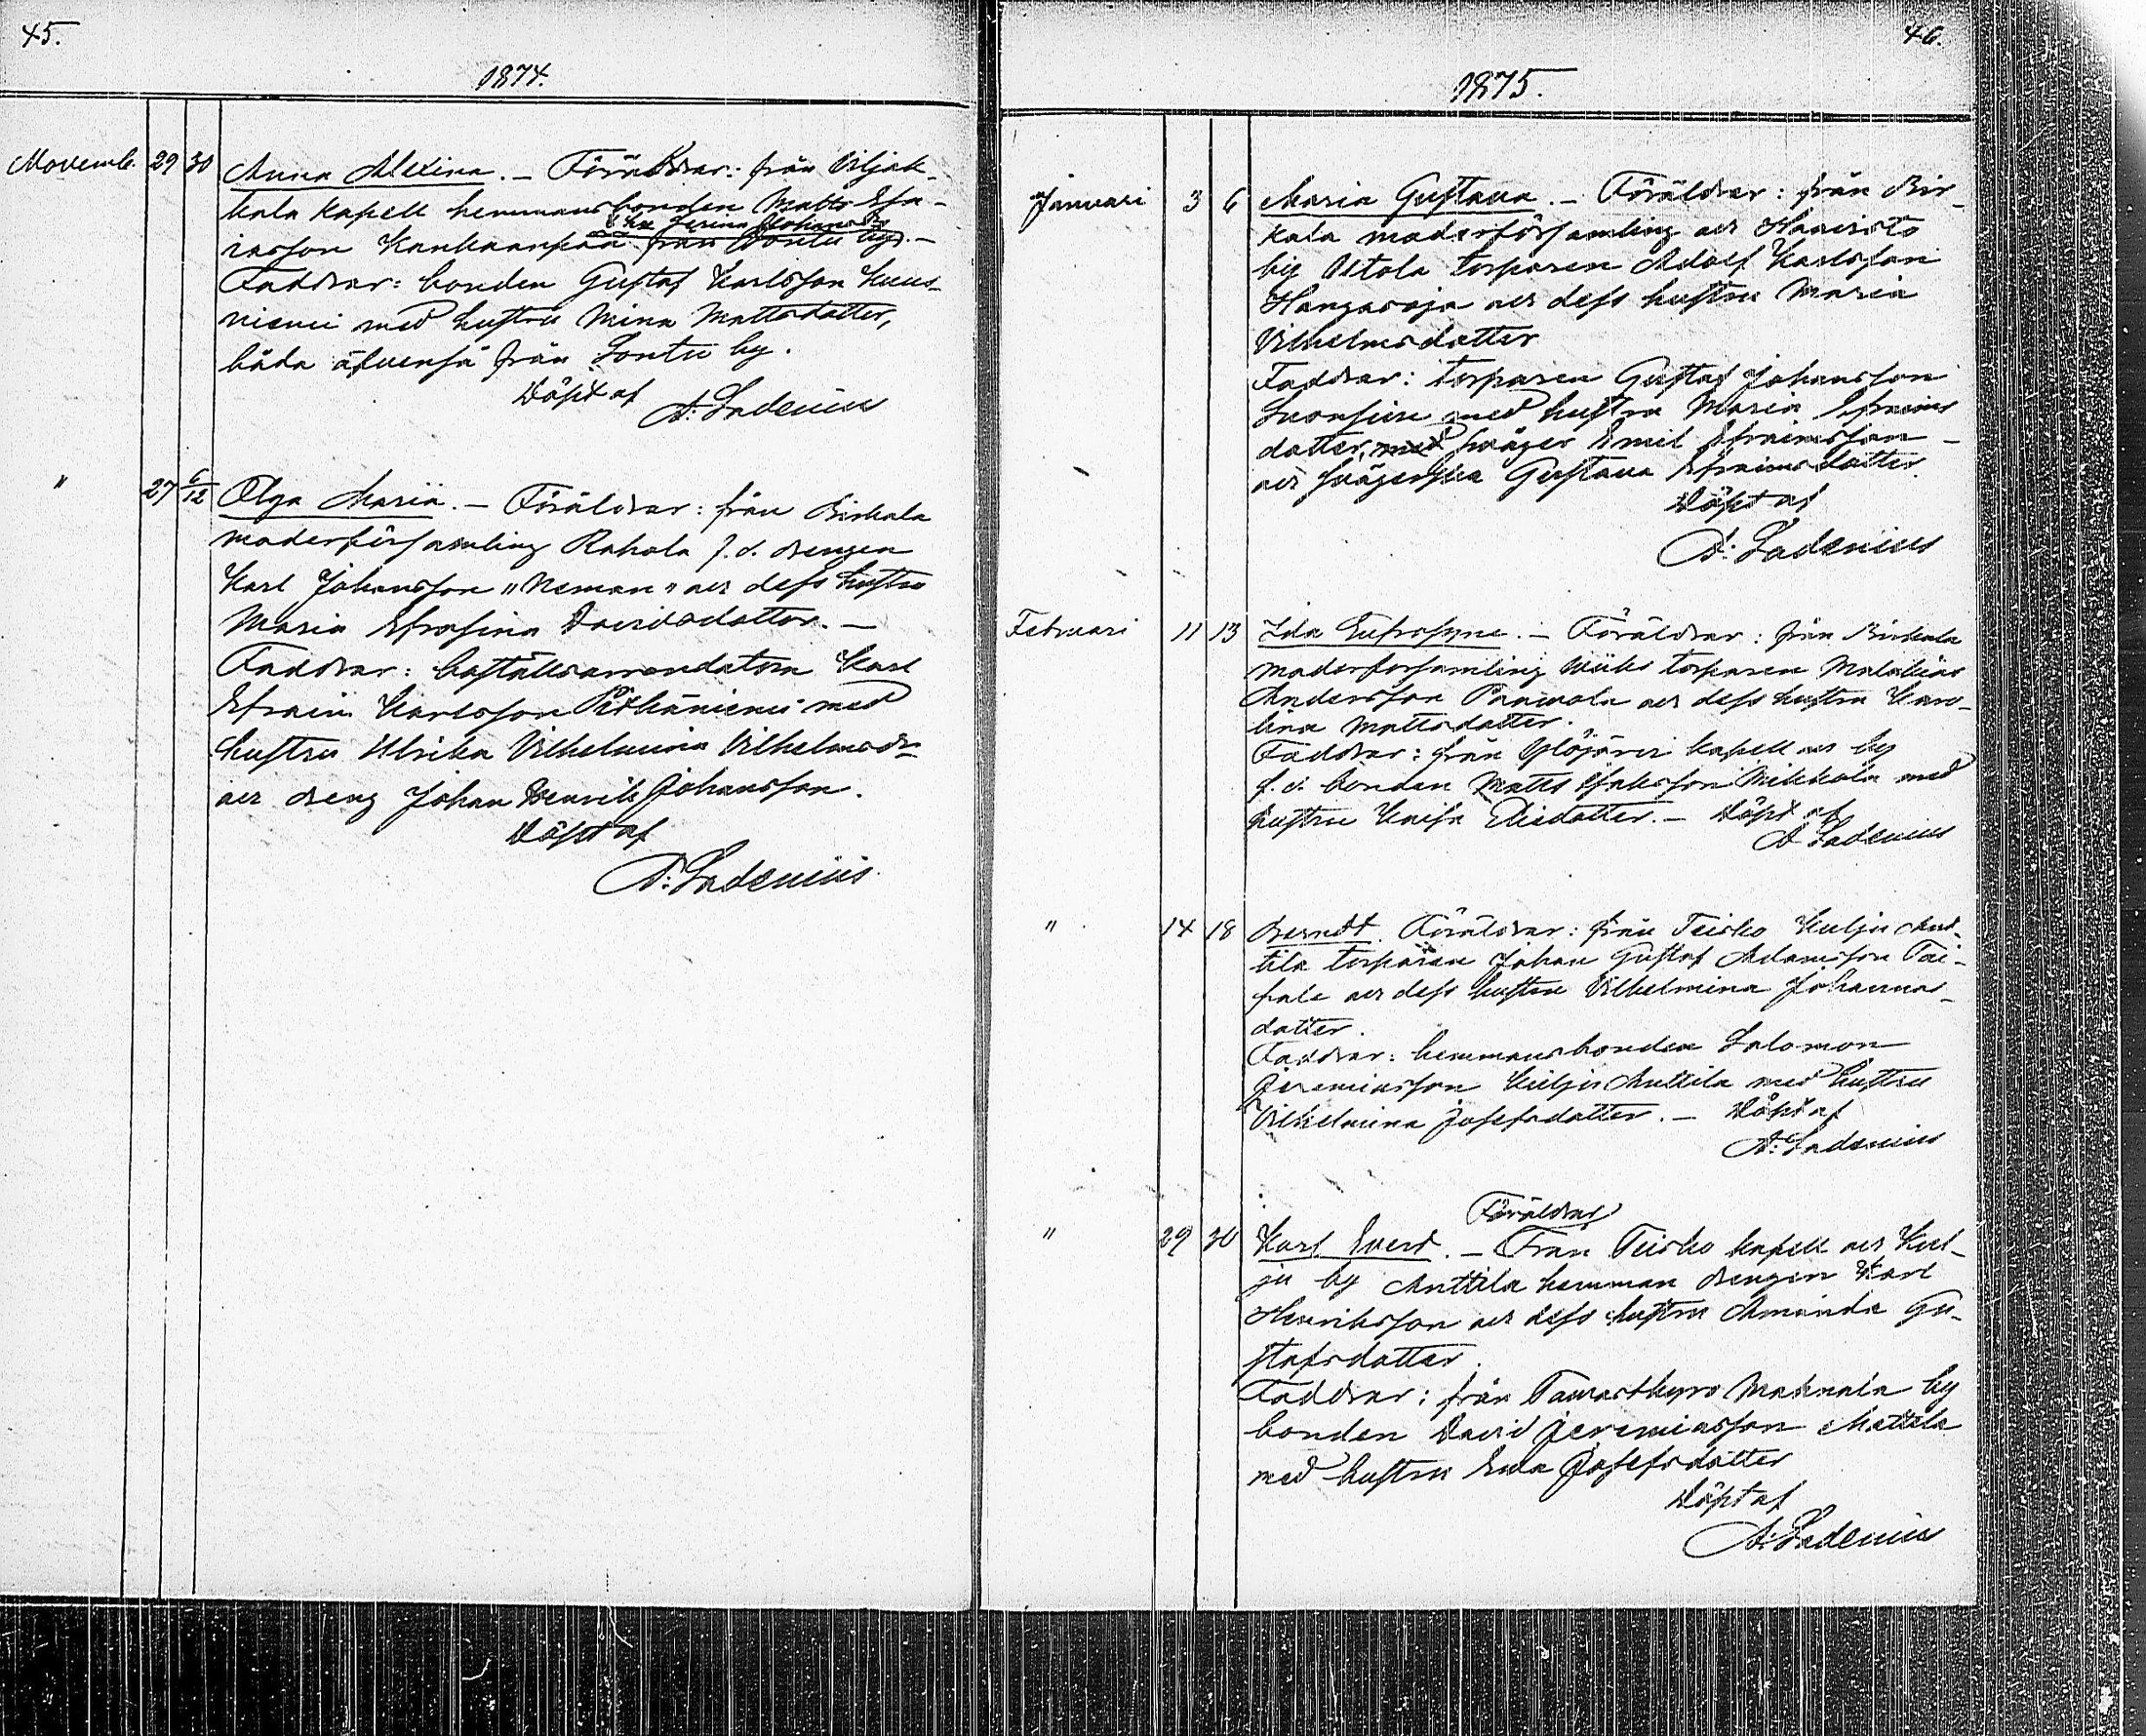 45.
1874.
Novemb. 29 30 Anna Alexina. – Föräldrar: från Viljak-
kala kapell hemmansbonden Matts Esa-
iasson Kankaanpää från Sontu by. –
Faddrar: bonden Gustaf Karlsson Kuus-
niemi med hustru Mina Mattsdotter,
båda äfvenså från Sontu by.
Döpt af
A: Ladenius
" 27 6/12 Olga Maria. – Föräldrar: från Birkala
moderförsamling Rahola f.d. drengen
Karl Johansson "Neman" och dess hustru
Maria Efrosina Davidsdotter. –
Faddrar: boställsarrendatorn Karl
Efraim Karlsson Pitkäniemi med
hustru Ulrika Vilhelmina Vilhelmsdr
och dreng Johan Henrik Johansson.
Döpt af
A: Ladenius
46.
1875.
Januari 3 6 Maria Gustava. – Föräldrar: från Bir-
kala moderförsamling och Haavisto
by Ditola torparen Adolf Karlsson
Hangasoja och dess hustru Maria
Vilhelmsdotter
Faddrar: torparen Gustaf Johansson
med hustru Maria Efraims
dotter, med svåger Emil Efraimsson –
och svägerska Gustava Efraimsdotter
Döpt af
A: Ladenius
Februari 11 13 Ida Eufrosyne. – Föräldrar: från Birkala
moderförsamling torparen Malakias
Andersson Paavola och dess hustru Karo-
lina Mattsdotter.
Faddrar: från Ylöjärvi kapell och by
f.d. bonden Matts Isaksson Mikkola med
hustru Kaisa Eliedotter. – Döpt af
A Ladenius
" 14 18 Berndt. Föräldrar: från Teisko Kulju Ant-
tila torparen Johan Gustaf Adamsson Tai-
pale och dess hustru Vilhelmina Johannes-
dotter.
Faddrar: hemmansbonden Salomon
Jeremiasson Kulju Anttila med hustru
Vilhelmina Josefsdotter. – Döpt af
A: Ladenius
Föräldrar
" 29 30 Karl Evert. – Från Teisko kapell och Kul-
ju by Anttila hemman drengen Karl
Henriksson och dess hustru Amanda Gu-
stafsdotter.
Faddrar: från Tavastkyro Mahnala by
bonden David Jeremiasson Mattila
med hustru Eva Josefsdotter
Döpt af
A: Ladenius